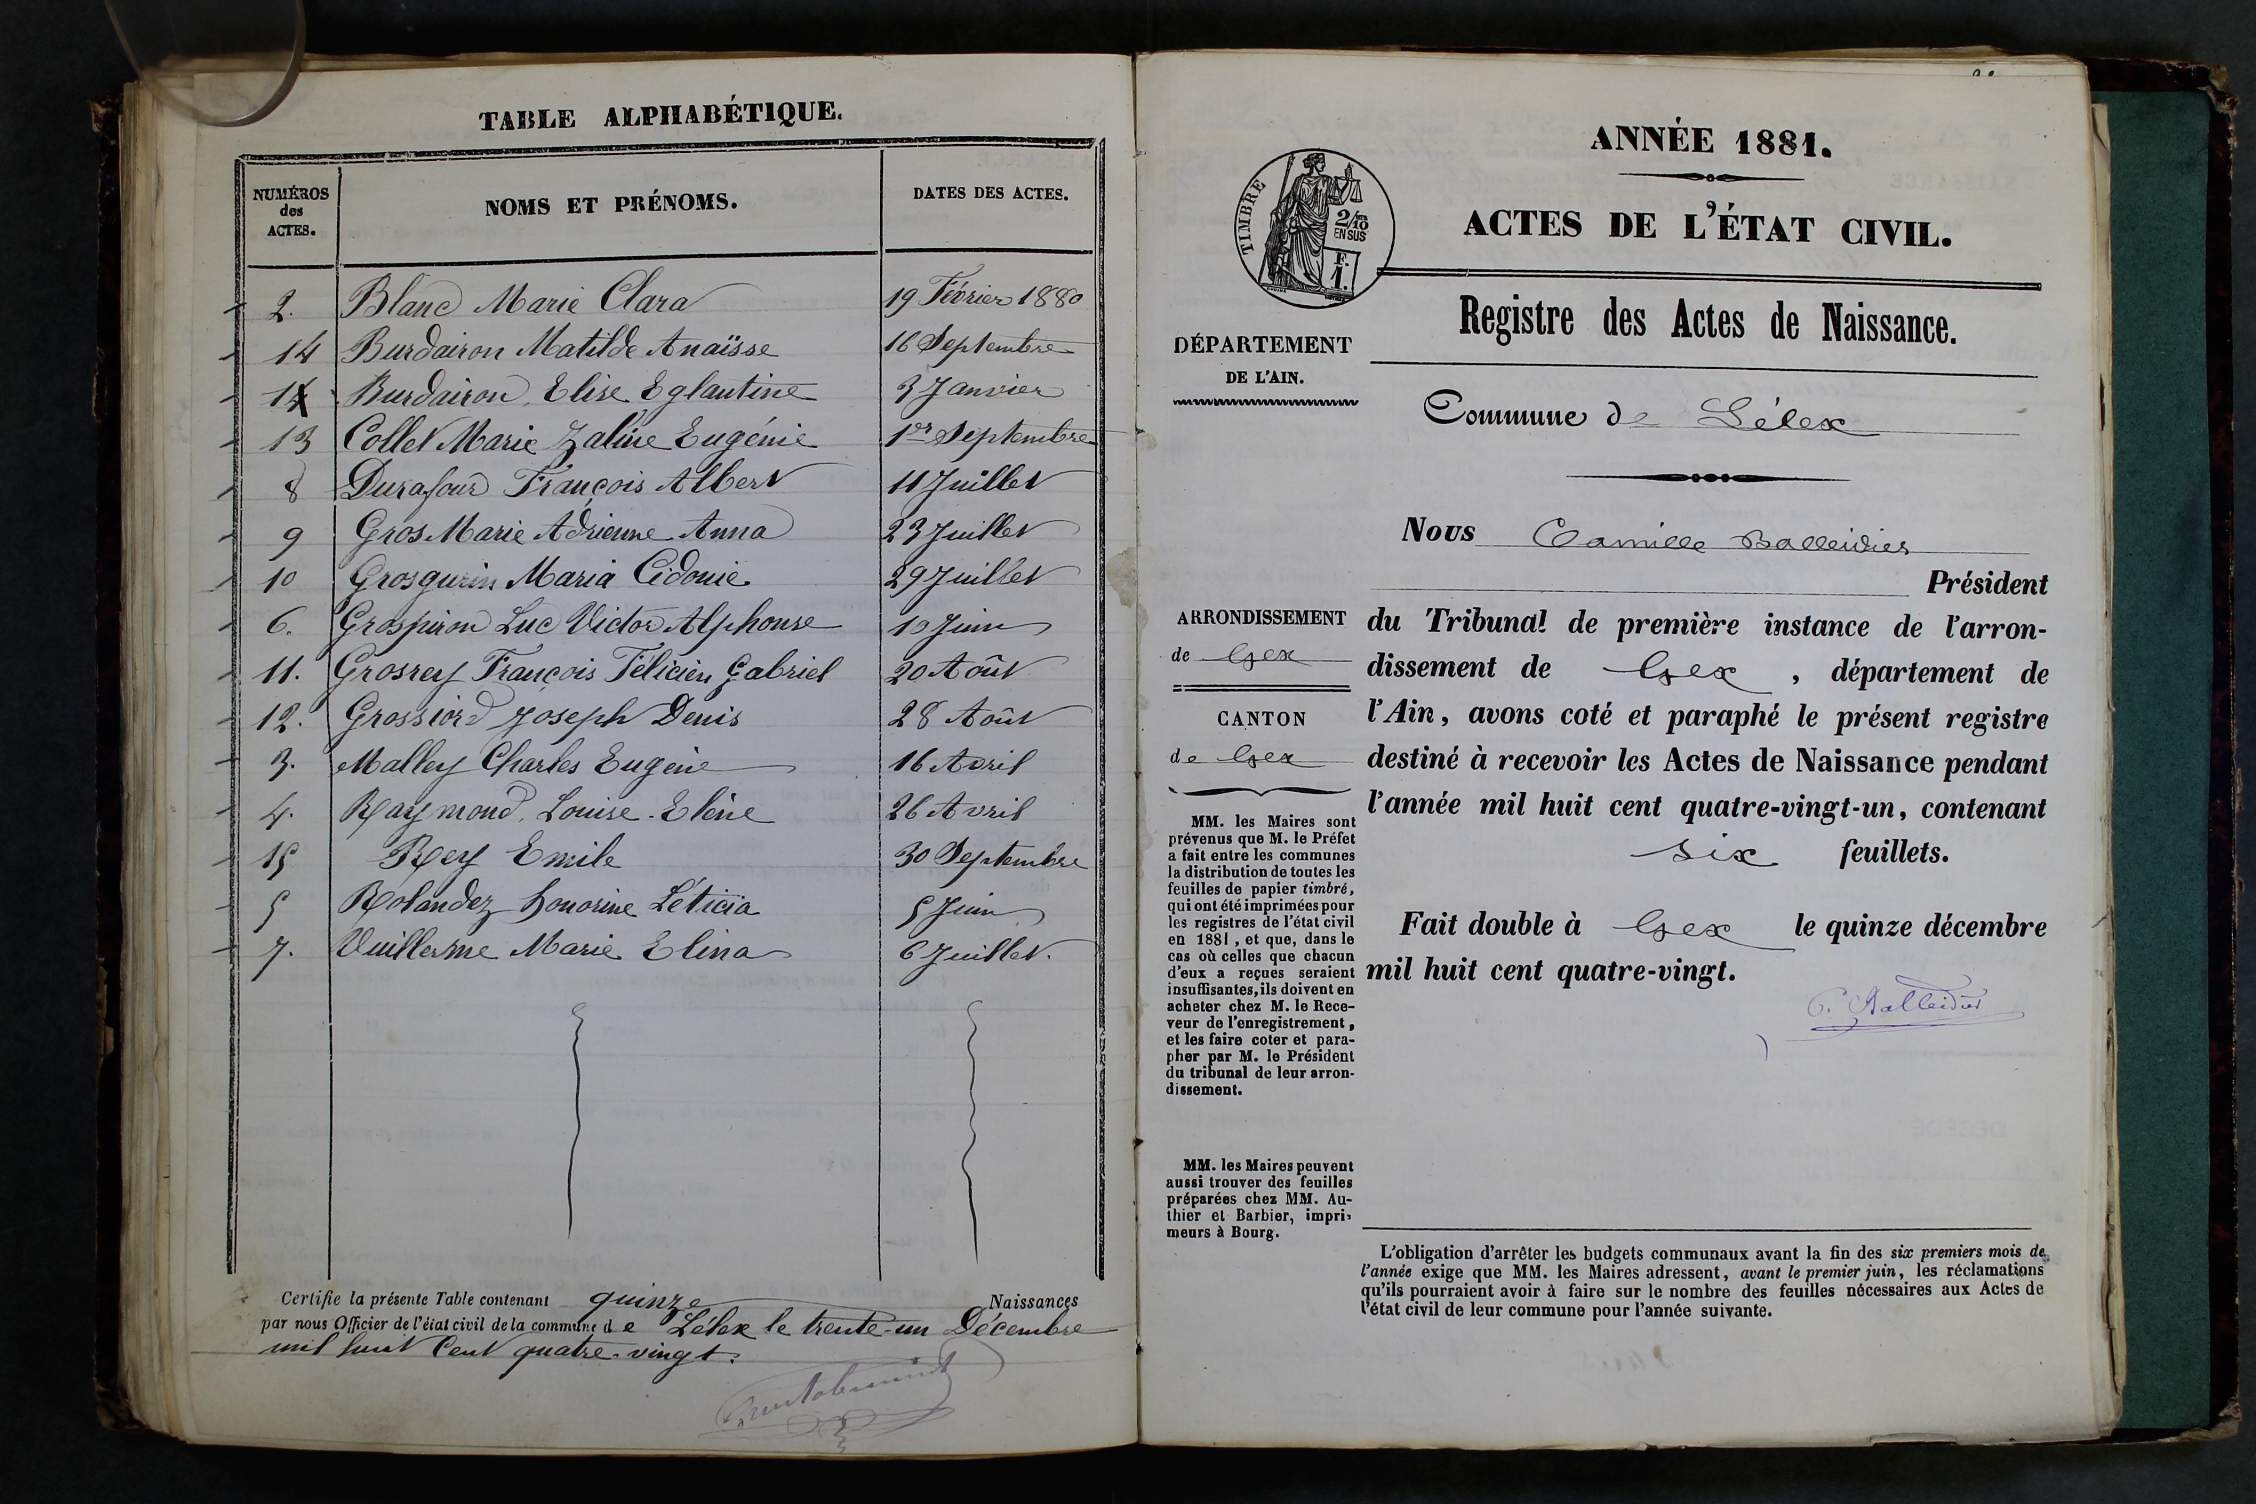 TABLE ALPHABÉTIQUE.
NUMÉROS des ACTES.
NOMS ET PRÉNOMS.
DATES DES ACTES.
2. Blanc Marie Clara 19 Février 1880
14 Burdairon Matilde Anaïsse 16 Septembre
1 Burdairon Elise Eglantine 3 Janvier
13 Collet Marie Zaline Eugénie 1er Septembre
8 Durafour François Albert 11 Juillet
9 Gros Marie Adrienne Anna 23 Juillet
10 Grosgurin Maria Cidonie 29 Juillet
6. Grospiron Luc Victor Alphonse 10 Juin
11. Grosrey François Félicien Gabriel 20 Août
12. Grossiord Joseph Denis 28 Août
3. Malley Charles Eugène 16 Avril
4. Raymond Louise Elène 26 Avril
15 Rey Emile 30 Septembre
5 Rolandez honorine Léticia 5 Juin
7. Vuillerme Marie Elina 6 Juillet.
Certifie la présente Table contenant quinze Naissances
par nous Officier de l'état civil de la commune de Lélex le trente-un Décembre
mil huit Cent quatre-vingt.
ANNÉE 1881.
ACTES DE L'ÉTAT CIVIL.
TIMBRE
2/10
EN SUS
F.
1.
Registre des Actes de Naissance.
DÉPARTEMENT
DE L'AIN.
Commune de Lélex
Nous Camille Balleidier
Président
ARRONDISSEMENT
de Gex
CANTON
de Gex
du Tribunal de première instance de l'arron-
dissement de Gex, département de
l'Ain, avons coté et paraphé le présent registre
destiné à recevoir les Actes de Naissance pendant
l'année mil huit cent quatre-vingt-un, contenant
six feuillets.
Fait double à Gex le quinze décembre
mil huit cent quatre-vingt.
C. Balleidier
MM. les Maires sont
prévenus que M. le Préfet
a fait entre les communes
la distribution de toutes les
feuilles de papier timbré,
qui ont été imprimées pour
les registres de l'état civil
en 1881, et que, dans le
cas où celles que chacun
d'eux a reçues seraient
insuffisantes, ils doivent en
acheter chez M. le Rece-
veur de l'enregistrement,
et les faire coter et para-
pher par M. le Président
du tribunal de leur arron-
dissement.
MM. les Maires peuvent
aussi trouver des feuilles
préparées chez MM. Au-
thier et Barbier, impri-
meurs à Bourg.
L'obligation d'arrêter les budgets communaux avant la fin des six premiers mois de
l'année exige que MM. les Maires adressent, avant le premier juin, les réclamations
qu'ils pourraient avoir à faire sur le nombre des feuilles nécessaires aux Actes de
l'état civil de leur commune pour l'année suivante.